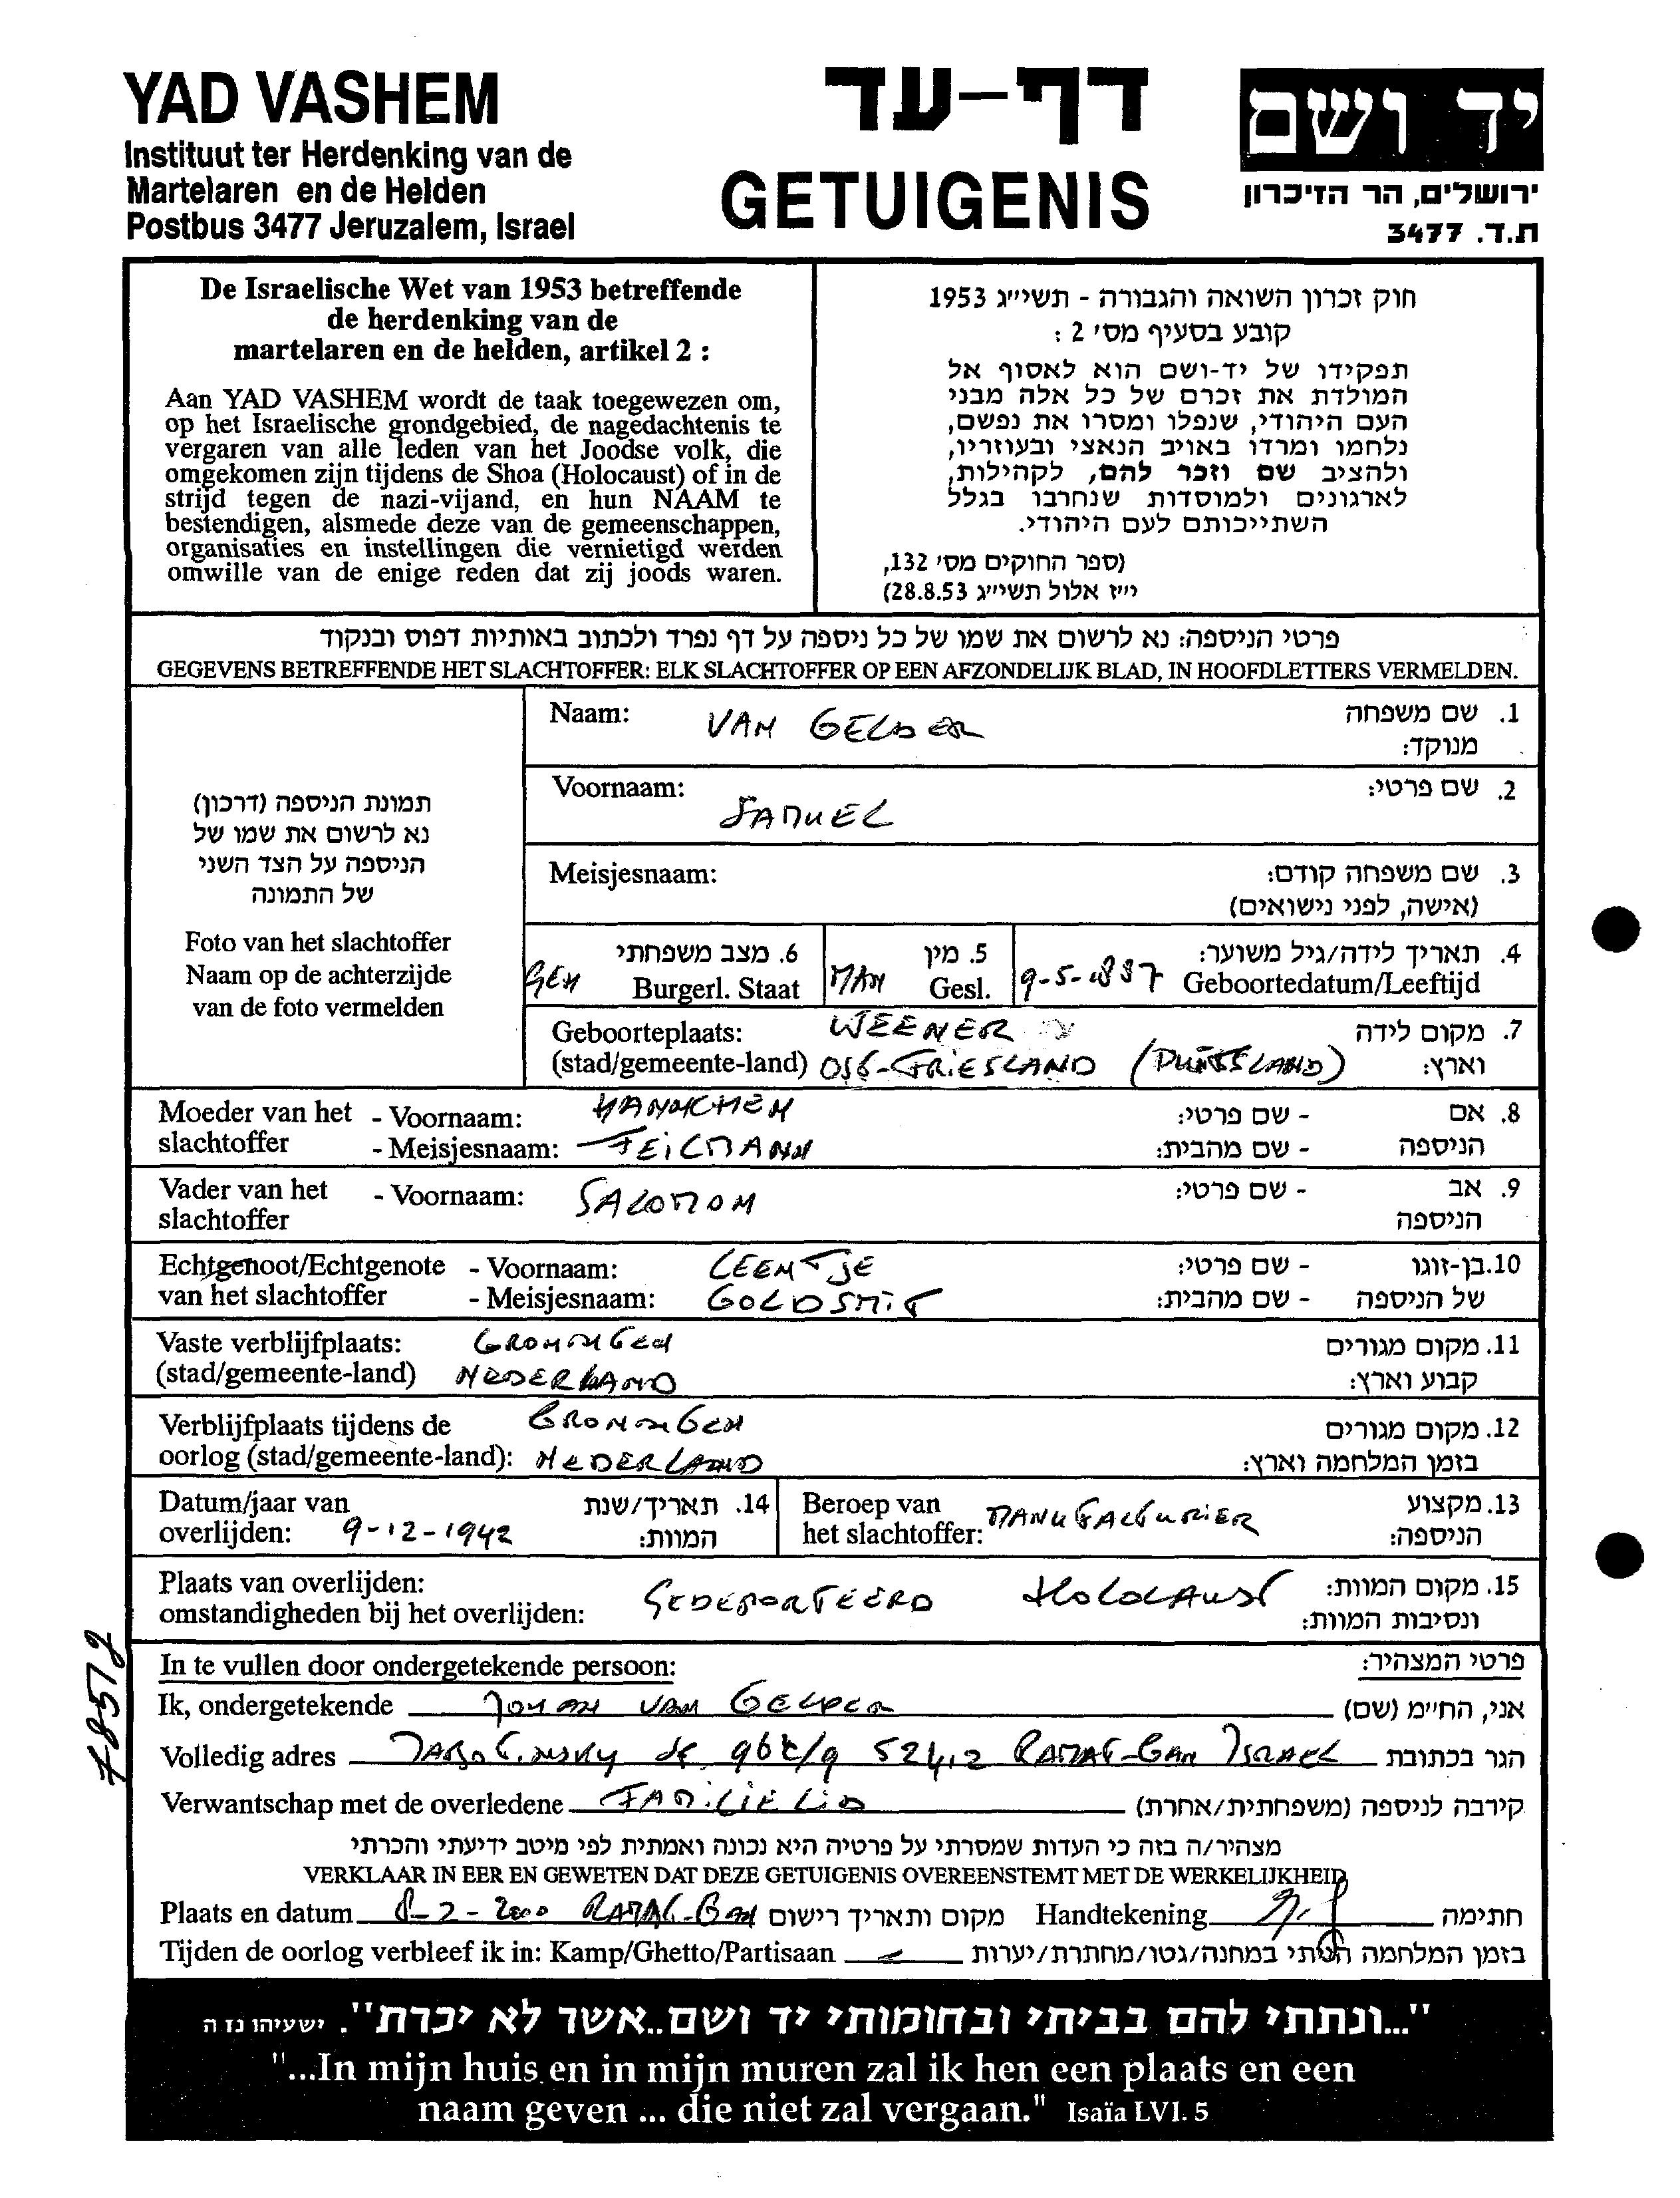 YAD VASHEM
Instituut ter Herdenking van de
Martelaren en de Helden
Postbus 3477 Jeruzalem, Israel
דף-עד
GETUIGENIS
יד ושם
ירושלים, הר הזיכרון
ת.ד. 3477
De Israelische Wet van 1953 betreffende
de herdenking van de
martelaren en de helden, artikel 2 :
Aan YAD VASHEM wordt de taak toegewezen om,
op het Israelische grondgebied, de nagedachtenis te
vergaren van alle leden van het Joodse volk, die
omgekomen zijn tijdens de Shoa (Holocaust) of in de
strijd tegen de nazi-vijand, en hun NAAM te
bestendigen, alsmede deze van de gemeenschappen,
organisaties en instellingen die vernietigd werden
omwille van de enige reden dat zij joods waren.
חוק זכרון השואה והגבורה - תשי״ג 1953
קובע בסעיף מס׳ 2 :
תפקידו של יד-ושם הוא לאסוף אל
המולדת את זכרם של כל אלה מבני
העם היהודי, שנפלו ומסרו את נפשם,
נלחמו ומרדו באויב הנאצי ובעוזריו,
ולהציב שם וזכר להם, לקהילות,
לארגונים ולמוסדות שנחרבו בגלל
השתייכותם לעם היהודי.
(ספר החוקים מס׳ 132,
י״ז אלול תשי״ג 28.8.53)
פרטי הניספה: נא לרשום את שמו של כל ניספה על דף נפרד ולכתוב באותיות דפוס ובנקוד
GEGEVENS BETREFFENDE HET SLACHTOFFER: ELK SLACHTOFFER OP EEN AFZONDELIJK BLAD, IN HOOFDLETTERS VERMELDEN.
תמונת הניספה (דרכון)
נא לרשום את שמו של
הניספה על הצד השני
של התמונה
Foto van het slachtoffer
Naam op de achterzijde
van de foto vermelden
Naam: VAN GELDER 1. שם משפחה
מנוקד:
Voornaam: SAMUEL 2. שם פרטי:
Meisjesnaam: 3. שם משפחה קודם:
(אישה, לפני נישואים)
6. מצב משפחתי 5. מין 4. תאריך לידה/גיל משוער:
GEH Burgerl. Staat MAN Gesl. 9-5-1887 Geboortedatum/Leeftijd
Geboorteplaats: WEENER 7. מקום לידה
(stad/gemeente-land) OST-FRIESLAND (DUITSLAND) וארץ:
Moeder van het - Voornaam: HANNCHEN - שם פרטי: 8. אם
slachtoffer - Meisjesnaam: FEILMANN - שם מהבית: הניספה
Vader van het - Voornaam: SALOMON - שם פרטי: 9. אב
slachtoffer הניספה
Echtgenoot/Echtgenote - Voornaam: LEENTJE - שם פרטי: 10. בן-זוגו
van het slachtoffer - Meisjesnaam: GOLDSMIT - שם מהבית: של הניספה
Vaste verblijfplaats: GRONINGEN 11. מקום מגורים
(stad/gemeente-land) NEDERLAND קבוע וארץ:
Verblijfplaats tijdens de GRONINGEN 12. מקום מגורים
oorlog (stad/gemeente-land): NEDERLAND בזמן המלחמה וארץ:
Datum/jaar van 14. תאריך/שנת Beroep van MANUFACTURIER 13. מקצוע
overlijden: 9-12-1942 המוות: het slachtoffer: הניספה:
Plaats van overlijden: GEDEPORTEERD HOLOCAUST 15. מקום המוות:
omstandigheden bij het overlijden: ונסיבות המוות:
78572
In te vullen door ondergetekende persoon: פרטי המצהיר:
Ik, ondergetekende JOHAN VAN GELDER אני, החי״מ (שם)
Volledig adres JABOTINSKY 96 52412 RAMAT-GAN ISRAEL הגר בכתובת
Verwantschap met de overledene FAMILIELID קירבה לניספה (משפחתית/אחרת)
מצהיר/ה בזה כי העדות שמסרתי על פרטיה היא נכונה ואמתית לפי מיטב ידיעתי והכרתי
VERKLAAR IN EER EN GEWETEN DAT DEZE GETUIGENIS OVEREENSTEMT MET DE WERKELIJKHEID
Plaats en datum 8-2-2000 RAMAT-GAN מקום ותאריך רישום Handtekening חתימה
Tijden de oorlog verbleef ik in: Kamp/Ghetto/Partisaan בזמן המלחמה הייתי במחנה/גטו/מחתרת/יערות
"...ונתתי להם בביתי ובחומותי יד ושם..אשר לא יכרת". ישעיהו נז ה
"...In mijn huis en in mijn muren zal ik hen een plaats en een
naam geven ... die niet zal vergaan." Isaïa LVI. 5